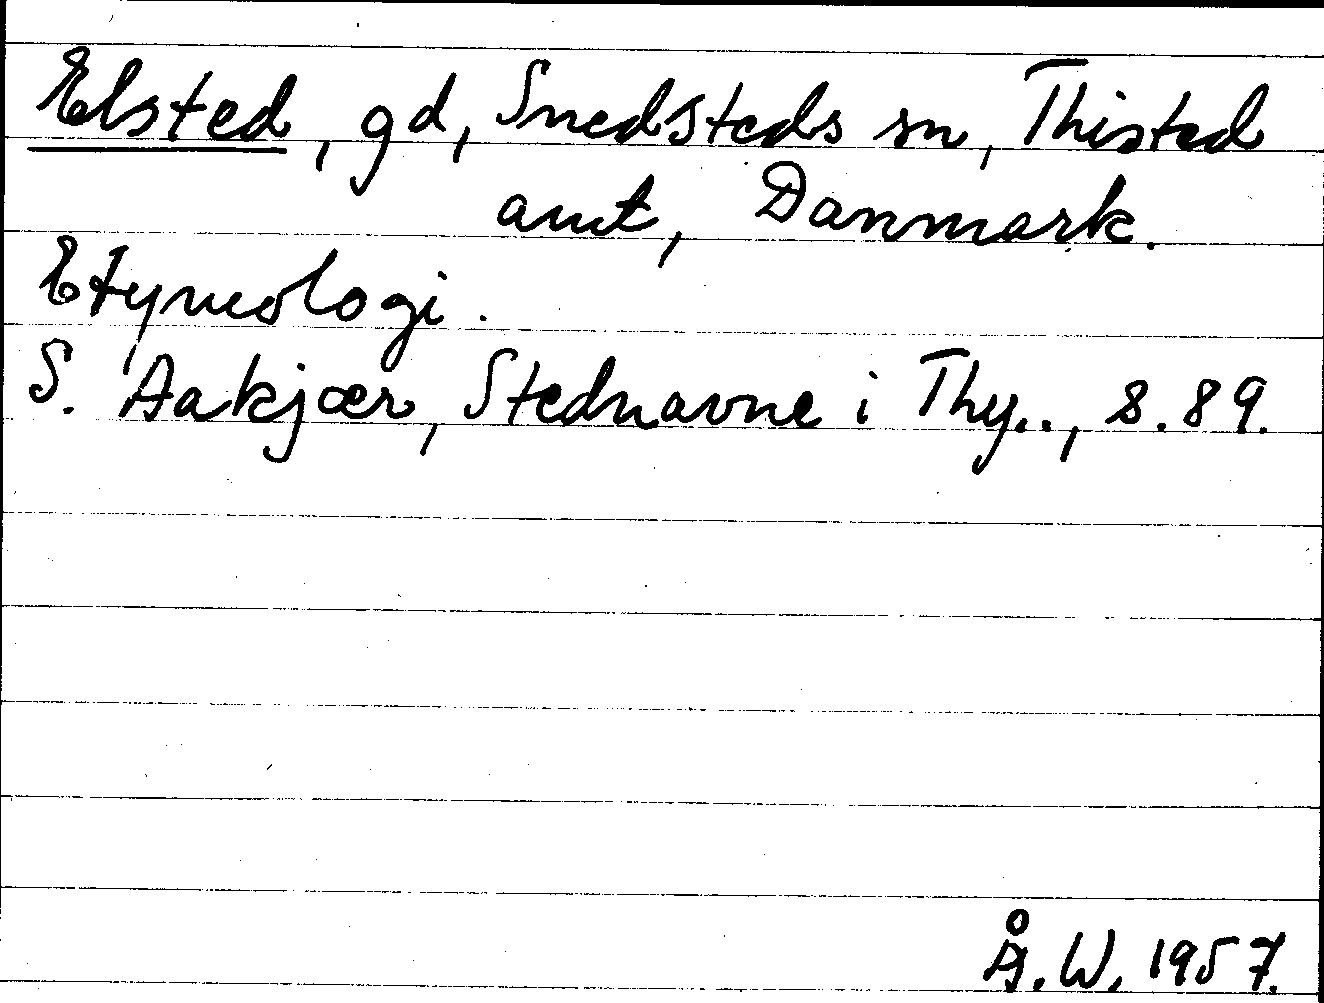 Elsted, gd, Snedsteds sn, Thisted
amt, Danmark.
Etymologi.
S. Aakjær, Stednavne i Thy.., s. 89.
Å.W. 1957.